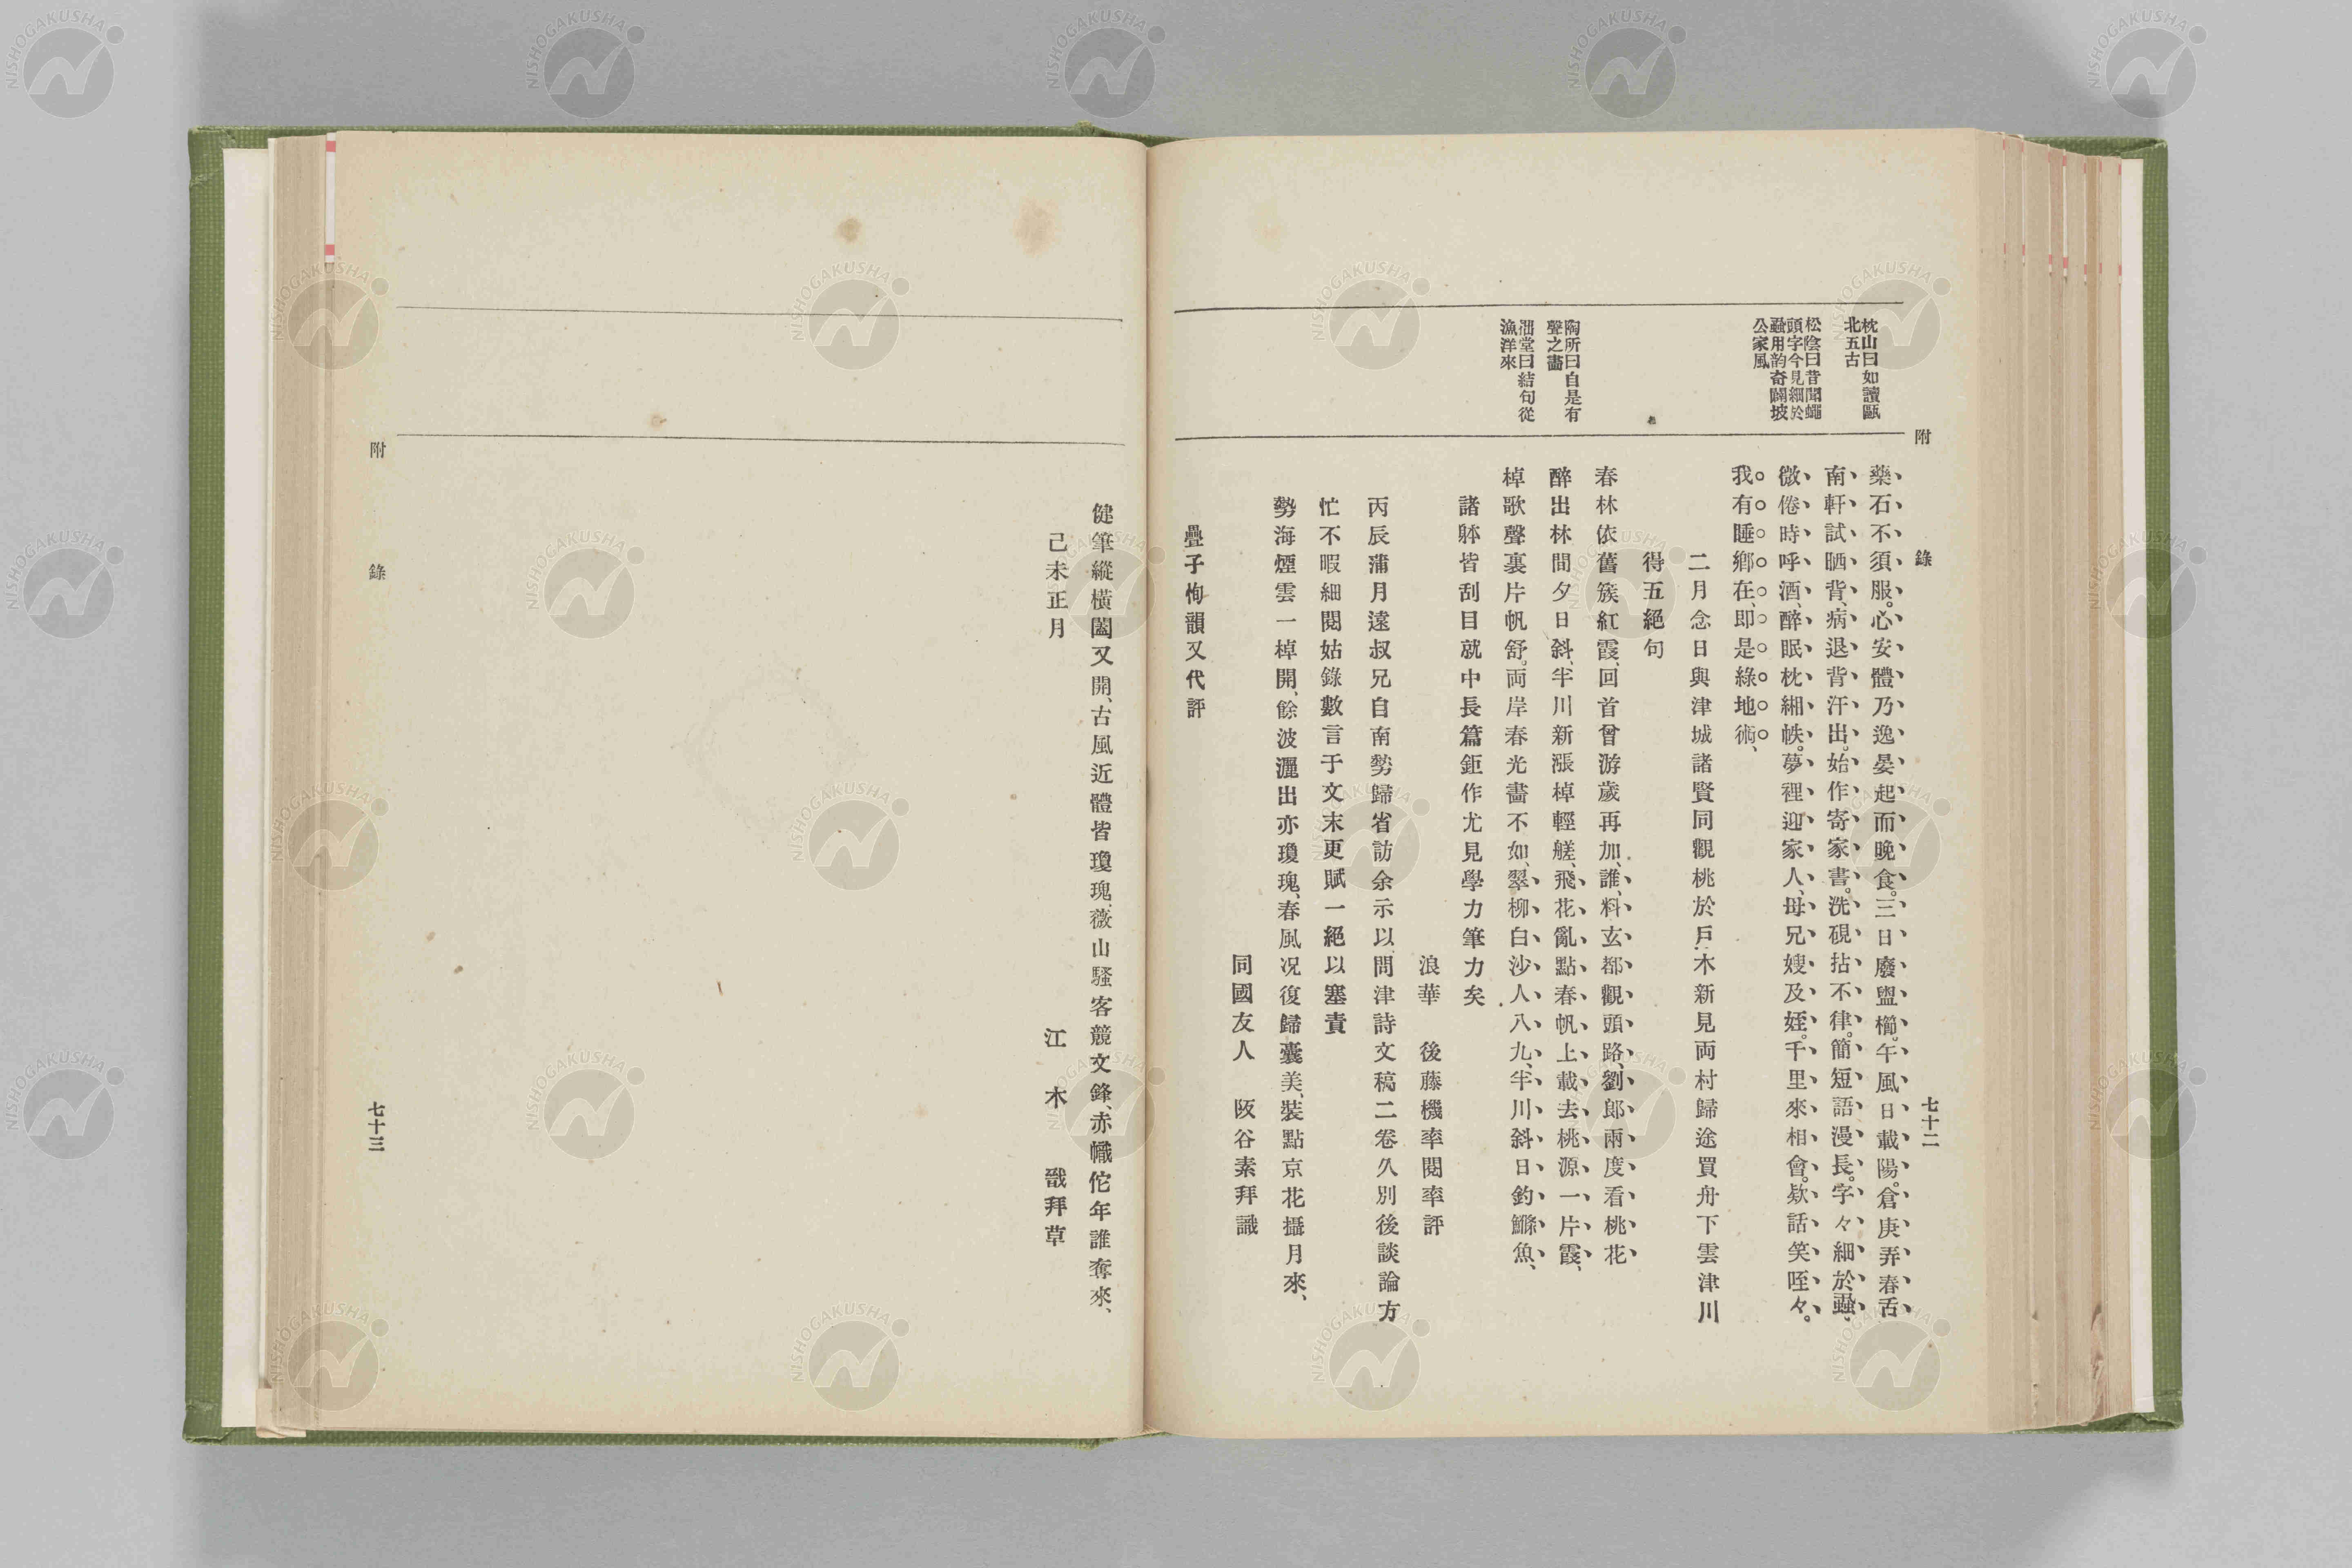 附 錄 七十二
枕山曰如讀甌
北五古
松陰曰昔聞蠅
頭字今見細於
蝨用韵奇闢坡
公家風
陶所曰自是有
聲之畵
漁洋來
藥石不須服。心安體乃逸晏起而晚食。三日廢盥櫛。午風日載陽。倉庚弄春舌
南軒試晒背、病退背汗出。始作寄家書。洗硯拈不律。簡短語漫長。字々細於蝨、
微倦時呼酒、醉眠枕緗帙。夢裡迎家人、母兄嫂及姪。千里來相會。欵話笑咥々。
我有睡鄉在、即是綠地術、
二月念日與津城諸賢同觀桃於戶木新見両村歸途買舟下雲津川
得五絕句
春林依舊簇紅霞、回首曾游歲再加、誰料玄都觀頭路、劉郎兩度看桃花
醉出林間夕日斜、半川新漲棹輕艖、飛花亂點春帆上、載去桃源一片霞、
棹歌聲裏片帆舒。両岸春光畵不如、翠柳白沙人八九、半川斜日釣鰷魚、
諸躰皆刮目就中長篇鉅作尤見學力筆力矣
浪華 後藤機率閱率評
丙辰蒲月遠叔兄自南勢歸省訪余示以問津詩文稿二卷久別後談論方
忙不暇細閱姑錄數言于文末更賦一絕以塞責
勢海煙雲一棹開、餘波灑出亦瓊瑰、春風況復歸囊美、裝點京花攝月來、
同國友人 阪谷素拜識
疊子恂韻又代評
健筆縱橫闔又開、古風近體皆瓊瑰、薇山騷客競文鋒、赤幟佗年誰奪來、
己未正月 江木戩拜草
附 錄 七十三